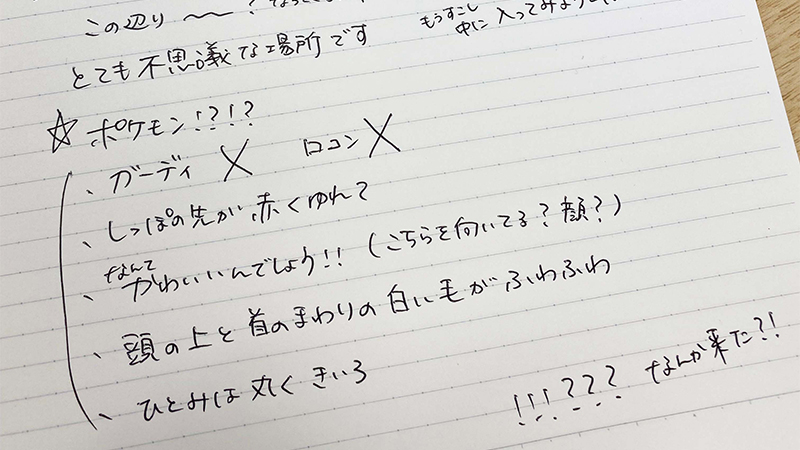 この辺り 〜〜?
もうすこし
中に入ってみよう
とても不思議な場所です
☆ポケモン!?!?
、ガーディ× ロコン×
、しっぽの先が赤くゆれて
、なんてかわいいんでしょう!!(こちらを向いてる?顔?)
、頭の上と首のまわりの白い毛がふわふわ
、ひとみは丸くきいろ
!!!??? なんか来た?!